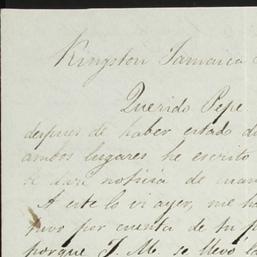 Kingston Jamaica
Querido Pepe
despues de haber estado
ambos lugares he escrito
noticia de
A este lo vi ayer, me
tuvo por cuenta de tu
porque J. M. se llevó